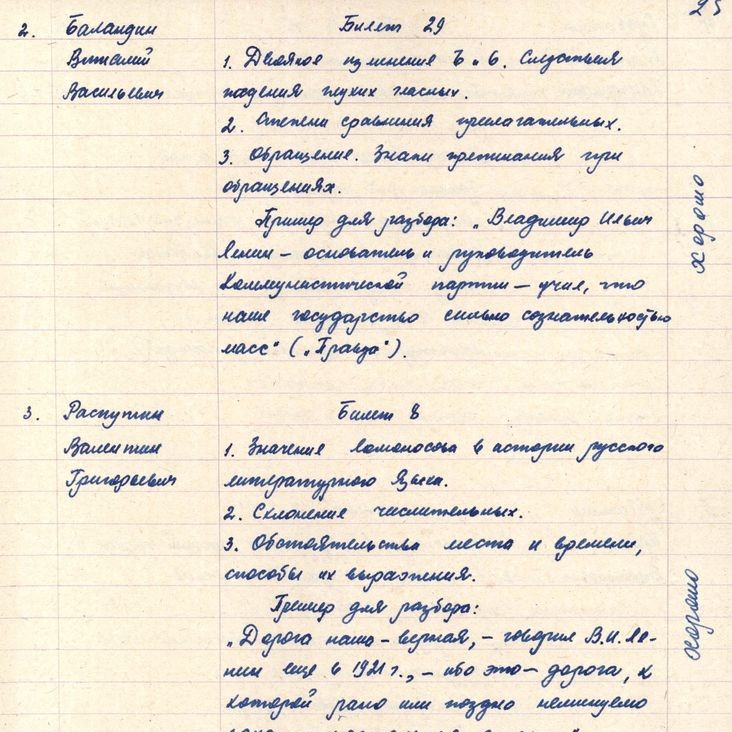 25
2. Баландин Билет 29
Виталий 1. Двоякое изменение ъ и ь. Следствия
Васильевич падения глухих гласных.
2. Степени сравнения прилагательных.
3. Обращение. Знаки препинания при
обращениях.
Пример для разбора: „Владимир Ильич
Ленин – основатель и руководитель
Коммунистической партии – учил, что
наше государство сильно сознательностью
масс" („Правда").
хорошо
3. Распутин Билет 8
Валентин 1. Значение Ломоносова в истории русского
Григорьевич литературного языка.
2. Склонение числительных.
3. Обстоятельства места и времени,
способы их выражения.
Пример для разбора:
„Дорога наша – верная, – говорил В.И. Ле-
нин еще в 1921 г., – ибо это – дорога, к
которой рано или поздно неминуемо
хорошо